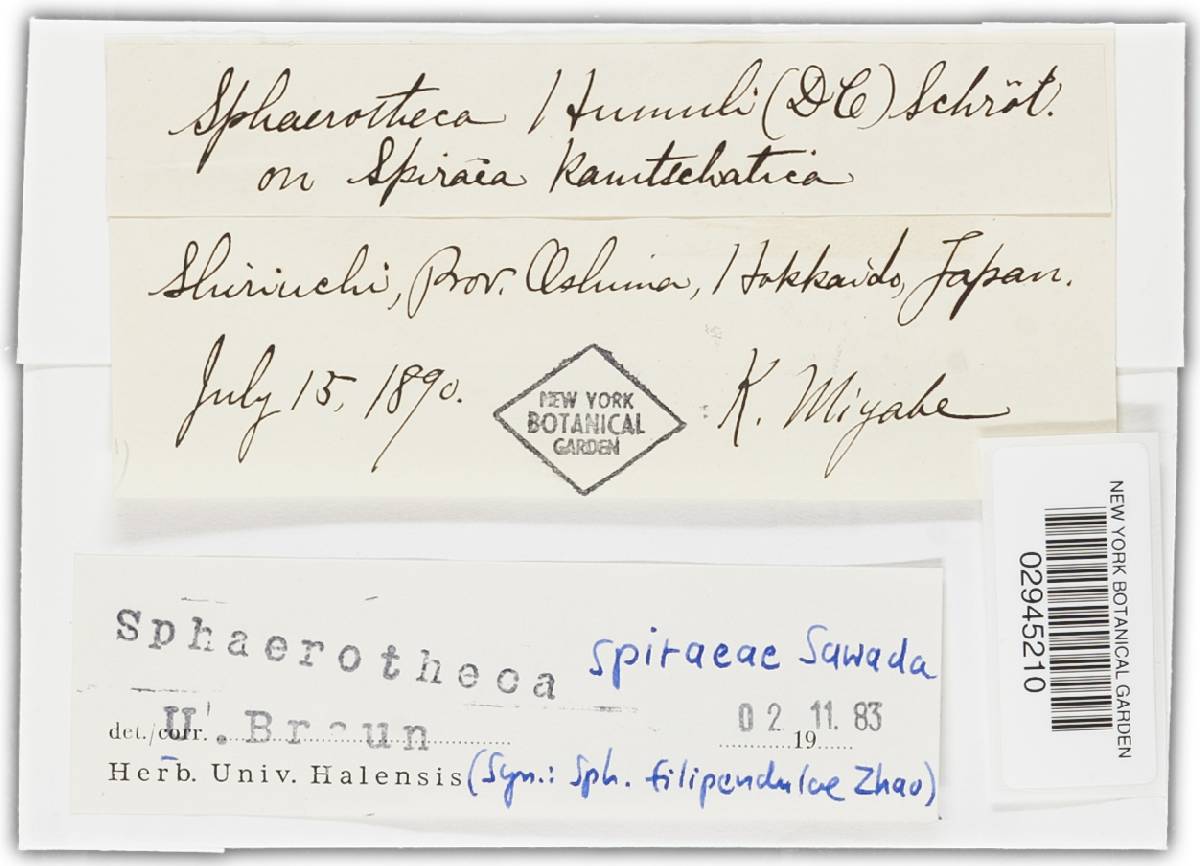 Sphaerotheca Humuli (DC) Schröt.
on Spiraea Kamtschatica
Shiriuchi, Prov. Oshima, Hokkaido, Japan.
July 15, 1890.
K. Miyabe
NEW YORK
BOTANICAL
GARDEN
NEW YORK BOTANICAL GARDEN
02945210
Sphaerotheca spiraeae Sawada
det./corr. U. Braun 02 11. 1983
Herb. Univ. Halensis (Syn.: Sph. filipendulae Zhao)